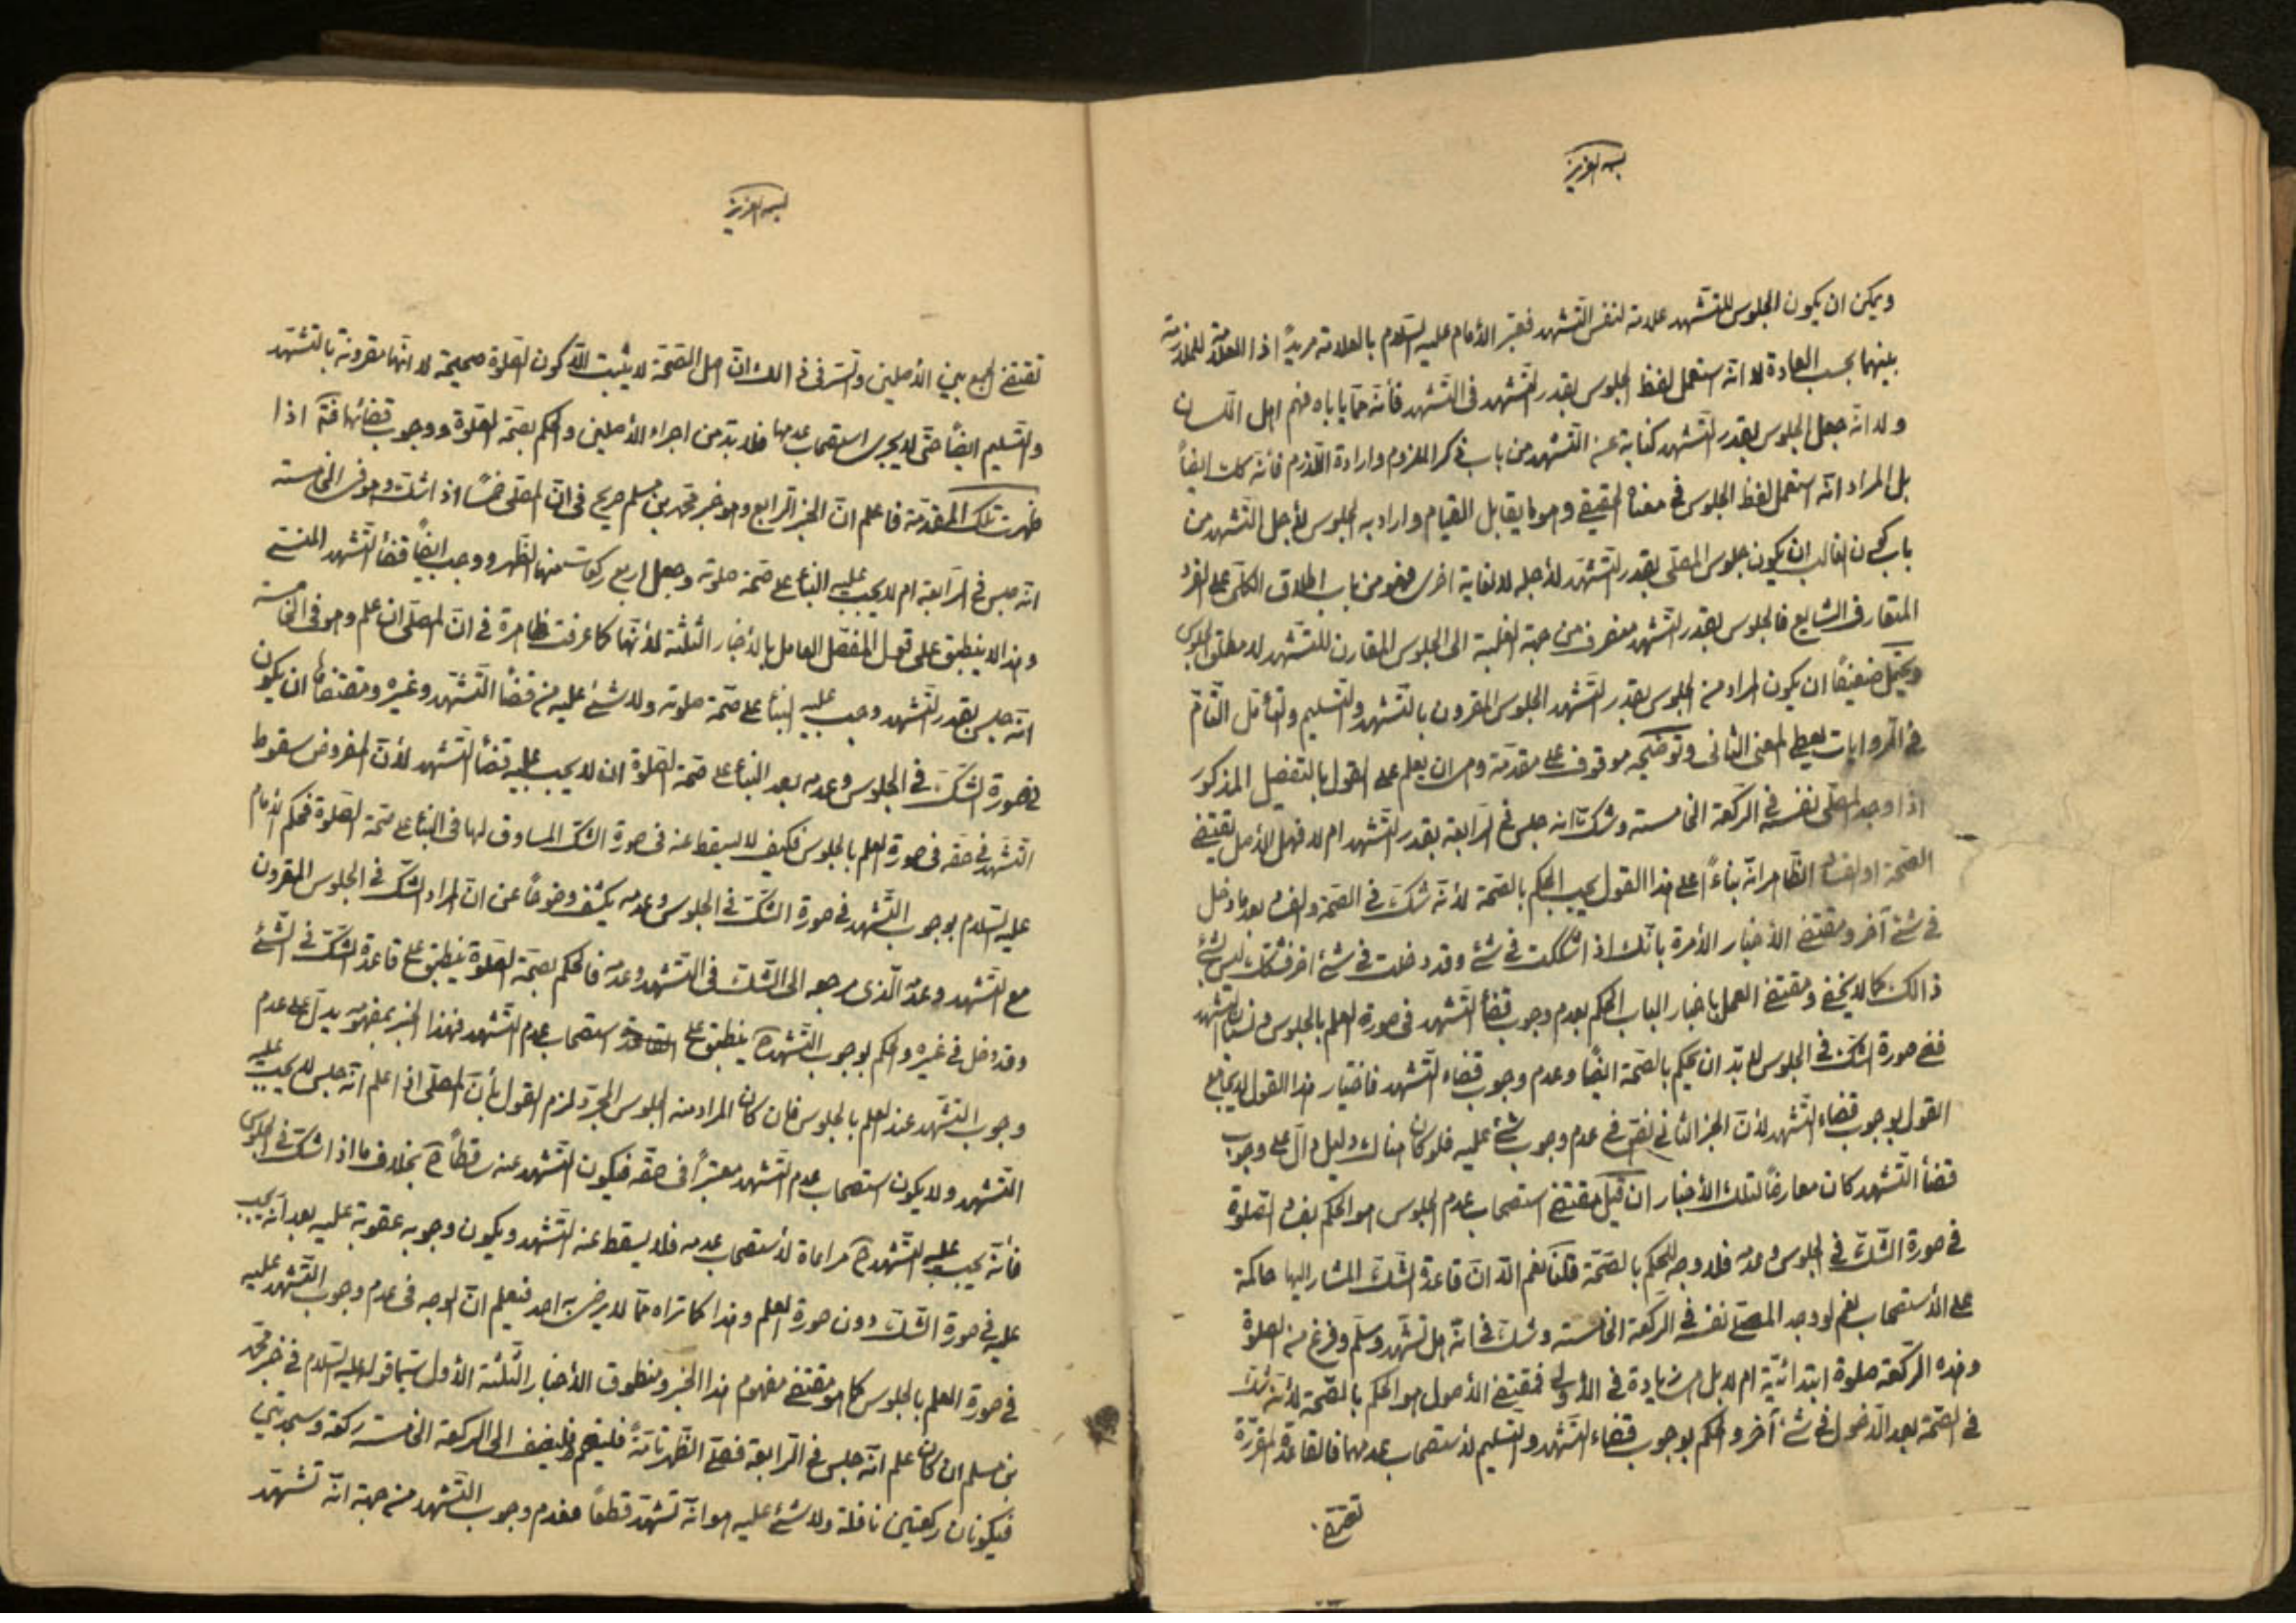 بسمه العزيز
ويمكن ان يكون الجلوس للتشهد علامة لنفس التشهد فعبّر الأمام عليه السّلام بالعلامة مريداً اذا العلامة للملازمة
بينهما بحسب العادة لا انّه استعمل لفظ الجلوس بقدر التّشهد فى التّشهد فأنّه ممّا ياباه فهم اهل اللّسان
ولا انّه جعل الجلوس بقدر التّشهد كناية عن التّشهد من باب ذكر الملزوم وارادة اللّازم فأنّه كك ايضاً
بل المراد انّه استعمل لفظ الجلوس فى معناه الحقيقى وهو ما يقابل القيام واراد به الجلوس لأجل التّشهد من
باب كون الغالب ان يكون جلوس المصلّى بقدر التّشهد لأجله لا لغاية اخرى فهو من باب اطلاق الكلّى على الفرد
المتعارف الشايع فالجلوس بقدر التّشهد منصرف من جهة الغلبة الى الجلوس المقارن للتّشهد لا مطلق الجلوس
ويحتمل ضعيفاً ان يكون المراد من الجلوس بقدر التّشهد الجلوس المقرون بالتّشهد والتّسليم والتأمّل التّامّ
فى الرّوايات يعطى المعنى الثّانى وتوضيحه موقوف على مقدّمة وهى ان يعلم على القول بالتفصيل المذكور
اذا وجد المصلّى نفسه فى الرّكعة الخامسة وشكّ انه جلس فى الرّابعة بقدر التّشهد ام لا فهل الأصل يقتضى
الصّحة او الفساد الظّاهر انّه بناءً على هذا القول يجب الحكم بالصّحة لأنّه شكّ فى الصّحة والفساد بعد ما دخل
فى شئ آخر ومقتضى الأخبار الأمرة بأنّك اذا شككت فى شئ وقد دخلت فى شئ اخر فشكّك ليس بشئ
ذالك كما لا يخفى ومقتضى العمل باخبار الباب الحكم بعدم وجوب قضاء التّشهد فى صورة العلم بالجلوس ونسيان التّشهد
ففى صورة الشكّ فى الجلوس لا بدّ ان يحكم بالصّحة ايضاً وعدم وجوب قضاء التّشهد فاختيار هذا القول لا يجامع
القول بوجوب قضاء التّشهد لأنّ الخبر الثانى نصّ فى عدم وجوب شئ عليه فلو كان هناك دليل دالّ على وجوب
قضاء التّشهد كان معارضاً لتلك الأخبار ان قيل مقتضى استصحاب عدم الجلوس هو الحكم بفساد الصّلوة
فى صورة الشّكّ فى الجلوس وعدمه فلا وجه للحكم بالصّحة قلنا نعم الّا انّ قاعدة الشّكّ المشار اليها حاكمة
على الأستصحاب نعم لو وجد المصلّى نفسه فى الرّكعة الخامسة وشكّ فى انّه هل تشهّد وسلّم وفرغ من الصلوة
وهذه الرّكعة صلوة ابتدائيّة ام لا بل هى زيادة فى الأولى فمقتضى الأصول هو الحكم بالصّحة لأنّه شكّ
فى الصّحة بعد الدّخول فى شئ آخر والحكم بوجوب قضاء التّشهد والتسليم لأستصحاب عدمهما فالقاعدة المقرّرة
تقتضى
بسمه العزيز
تقتضى الجمع بين الأصلين والسّر فى ذالك انّ اصل الصّحّة لا يثبت الّا كون الصّلوة صحيحة لا انّها مقرونة بالتّشهّد
والتّسليم ايضاً حتّى لا يجرى استصحاب عدمها فلا بدّ من اجراء الأصلين والحكم بصحّة الصّلوة ووجوب قضائها اذا
ظهرت تلك المقدمة فاعلم انّ الخبر الرّابع وهو خبر محمّد بن مسلم صريح فى انّ المصلّى خمساً اذا شكّ وهو فى الخامسة
انّه جلس فى الرّابعة ام لا يجب عليه البناء على صحّة صلوته وجعل اربع ركعات منها الظّهر ووجب ايضاً قضاء التّشهد المنسىّ
وهذا لا ينطبق على قول المفصّل العامل بالأخبار الثّلثة لأنّها كما عرفت ظاهرة فى انّ المصلّى ان علم وهو فى الخامسة
انّه جلس بقدر التّشهد وجب عليه البناء على صحّة صلوته ولا شئ عليه من قضاء التّشهّد وغيره ومقتضاها ان يكون
فى صورة الشّكّ فى الجلوس وعدمه بعد البناء على صحّة الصّلوة ان لا يجب عليه قضاء التّشهد لأنّ المفروض سقوط
التّشهّد فى حقّه فى صورة العلم بالجلوس فكيف لا يسقط عنه فى صورة الشّكّ المساوق لها فى البناء على صحّة الصّلوة فحكم الإمام
عليه السّلام بوجوب التّشهد فى صورة الشّكّ فى الجلوس وعدمه يكشف وضوحاً عن انّ المراد الشّكّ فى الجلوس المقرون
مع التّشهد وعدمه الّذى مرجعه الى الشّكّ فى التّشهد وعدمه فالحكم بصحّة الصّلوة ينطبق على قاعدة الشّكّ فى الشّئ
وقد دخل فى غيره والحكم بوجوب التّشهد ح ينطبق على استصحاب عدم التّشهد فهذا الخبر بمفهومه يدلّ على عدم
وجوب التّشهّد عند العلم بالجلوس فان كان المراد منه الجلوس المجرّد لزم القول بأنّ المصلّى اذا علم انّه جلس لا يجب عليه
التّشهد ولا يكون استصحاب عدم التّشهد معتبراً فى حقّه فيكون التّشهد عنه ساقطاً ح بخلاف ما اذا شكّ فى الجلوس
فأنّه يجب عليه التّشهد ح مراعاة لأستصحاب عدمه فلا يسقط عنه التّشهد ويكون وجوبه عقوبة عليه بعد انّه يجب
عليه فى صورة الشّكّ دون صورة العلم وهذا كما تراه ممّا لا يرضى به احد فنعلم انّ الوجه فى عدم وجوب التّشهّد عليه
فى صورة العلم بالجلوس كما هو مقتضى مفهوم هذا الخبر ومنطوق الأخبار الثّلثة الأول سيّما قوله عليه السّلام فى خبر محمّد
بن مسلم ان كان علم انّه جلس فى الرّابعة فصلّى الظّهر تامّةً فليقم وليضف الى الركعة الخامسة ركعة وسجدتين
فيكونان ركعتين نافلة ولا شئ عليه هو انّه تشهّد قطعاً فعدم وجوب التّشهد من جهة انّه تشهّد